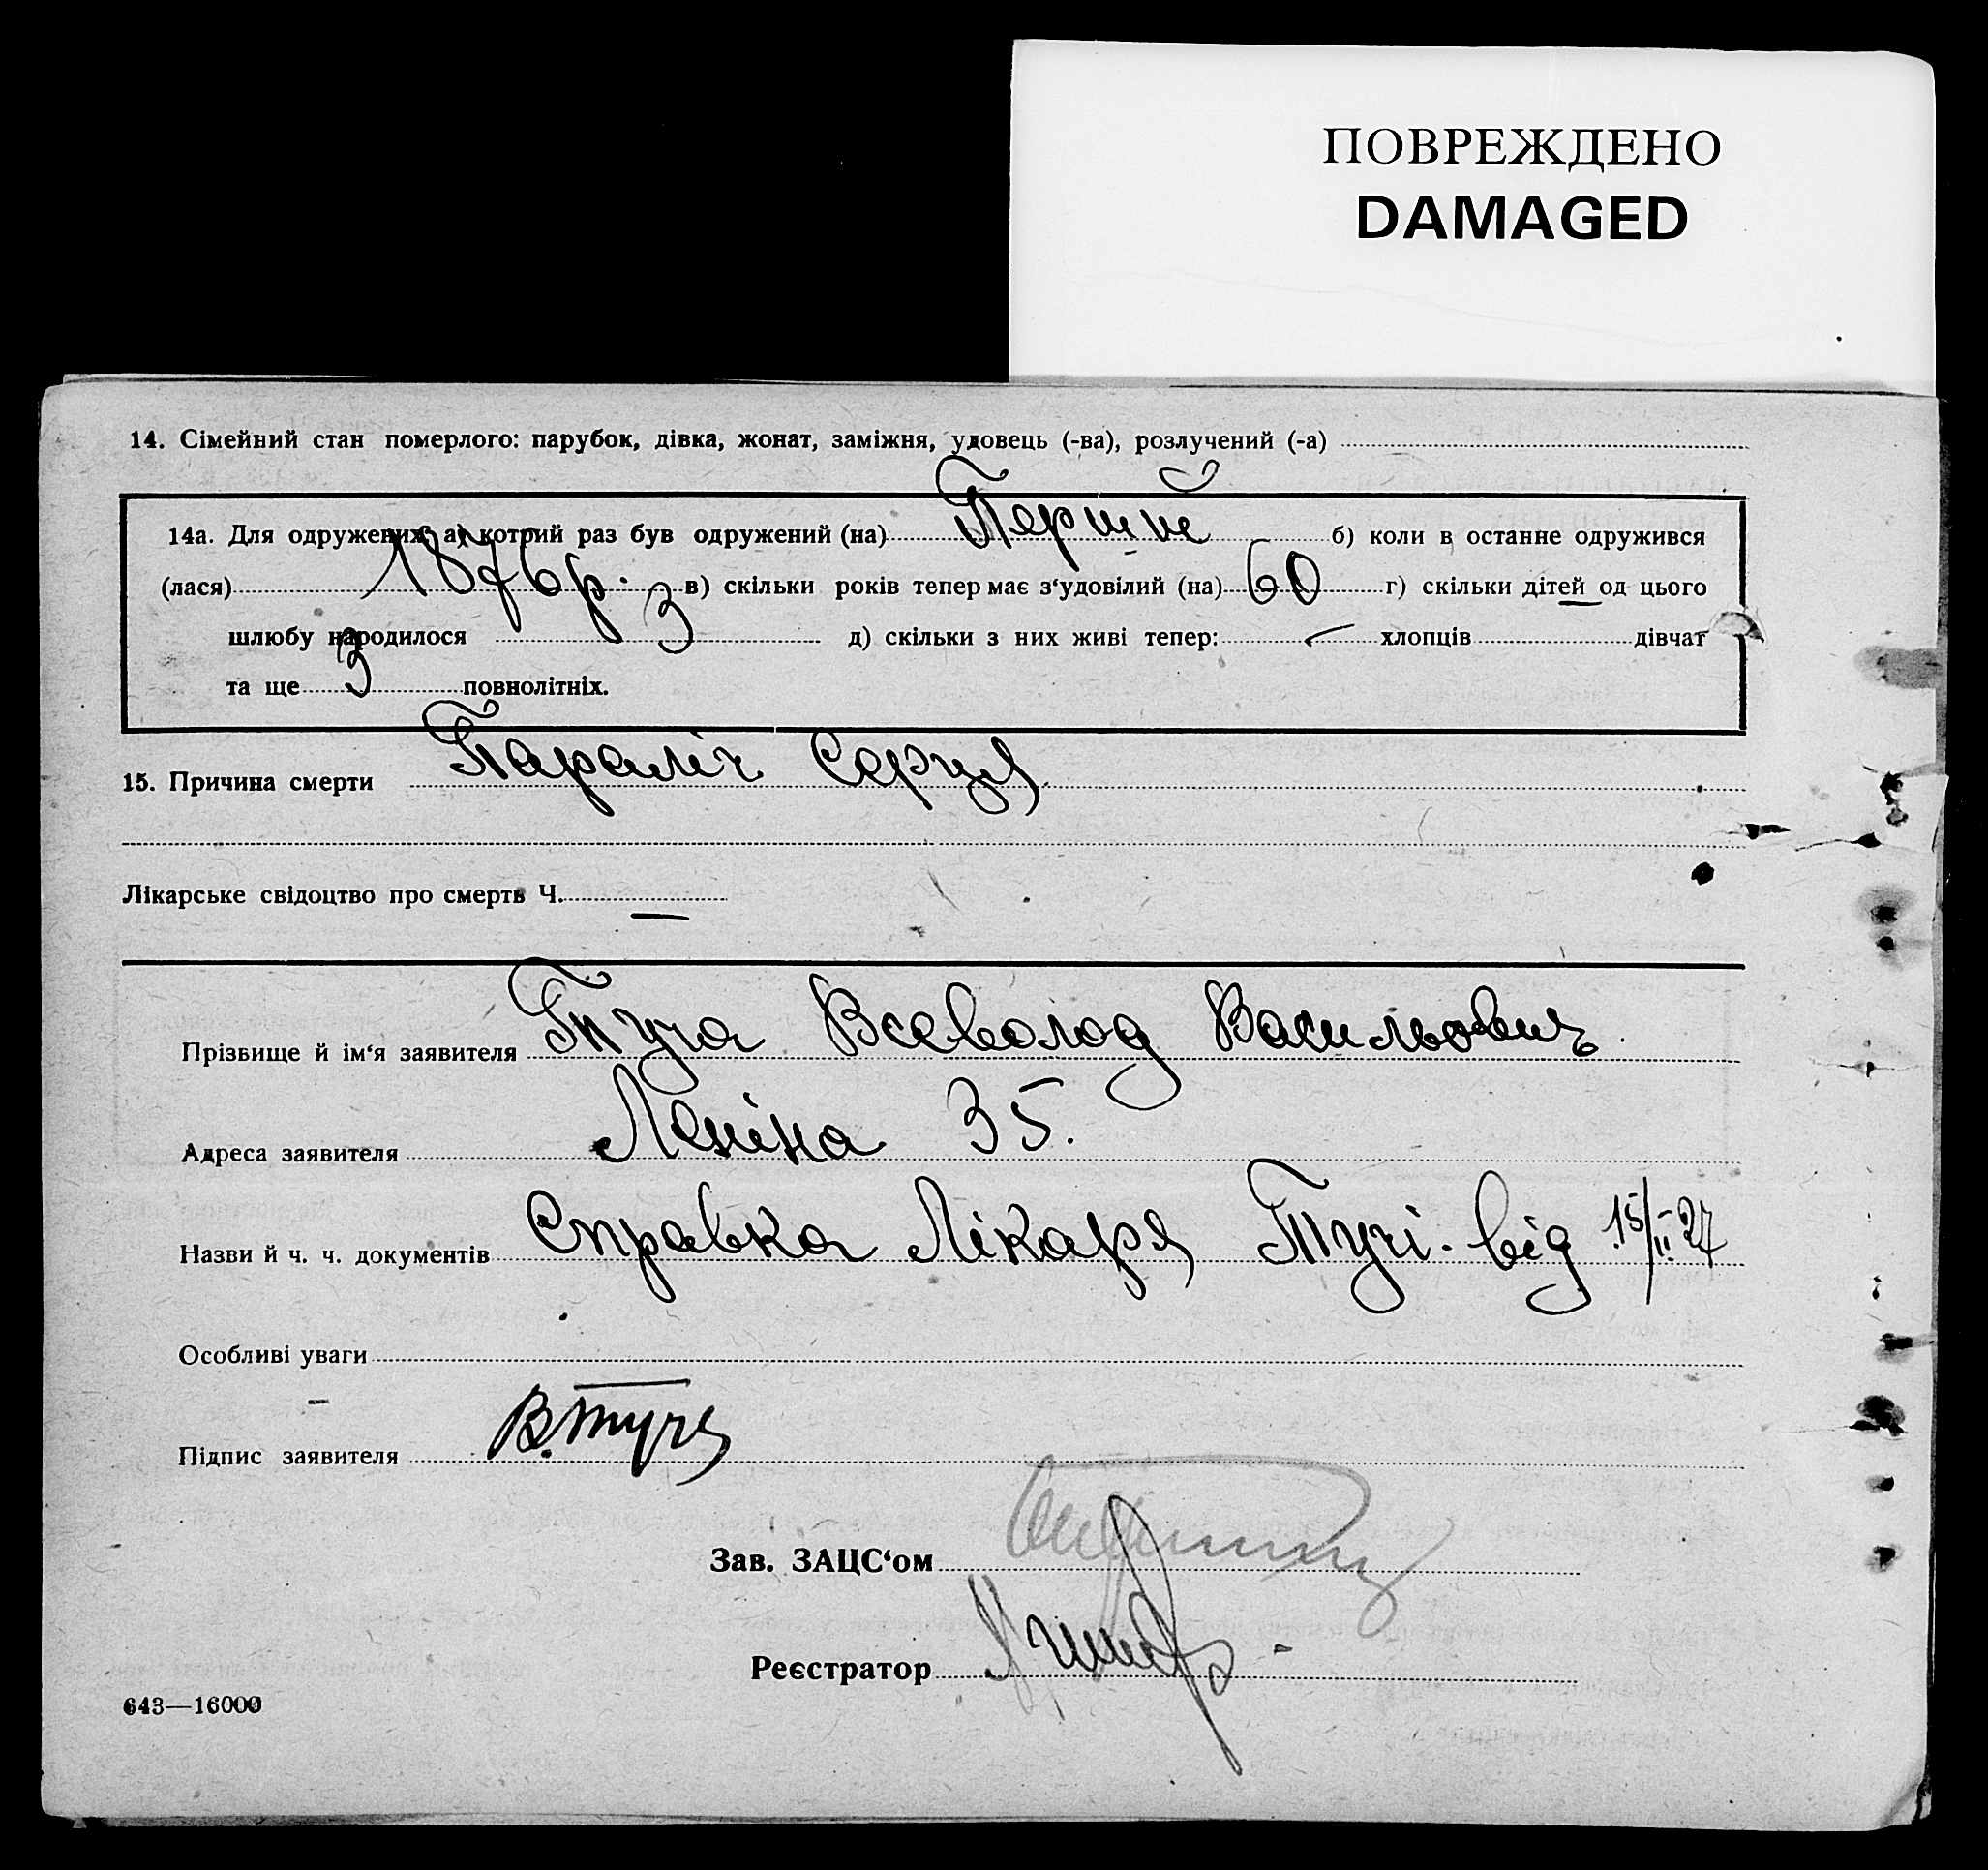 ПОВРЕЖДЕНО
DAMAGED
14. Сімейний стан померлого: парубок, дівка, жонат, заміжня, удовець (-ва), розлучений (-а)
14а. Для одружених: а) котрий раз був одружений (на) Перший б) коли в останнє одружився
(лася) 1876 р. в) скільки років тепер має з‘удовілий (на) 60 г) скільки дітей од цього
шлюбу народилося 3 д) скільки з них живі тепер: — хлопців дівчат
та ще 3 повнолітніх.
15. Причина смерти Параліч Серця
Лікарське свідоцтво про смерть Ч. —
Прізвище й ім‘я заявителя Туча Всеволод Васильович
Адреса заявителя Леніна 35.
Назви й ч. ч. документів Справка Лікаря Тучі від 15/II 27
Особливі уваги —
Підпис заявителя В. Туча
Зав. ЗАЦС‘ом
Реєстратор
643—16000